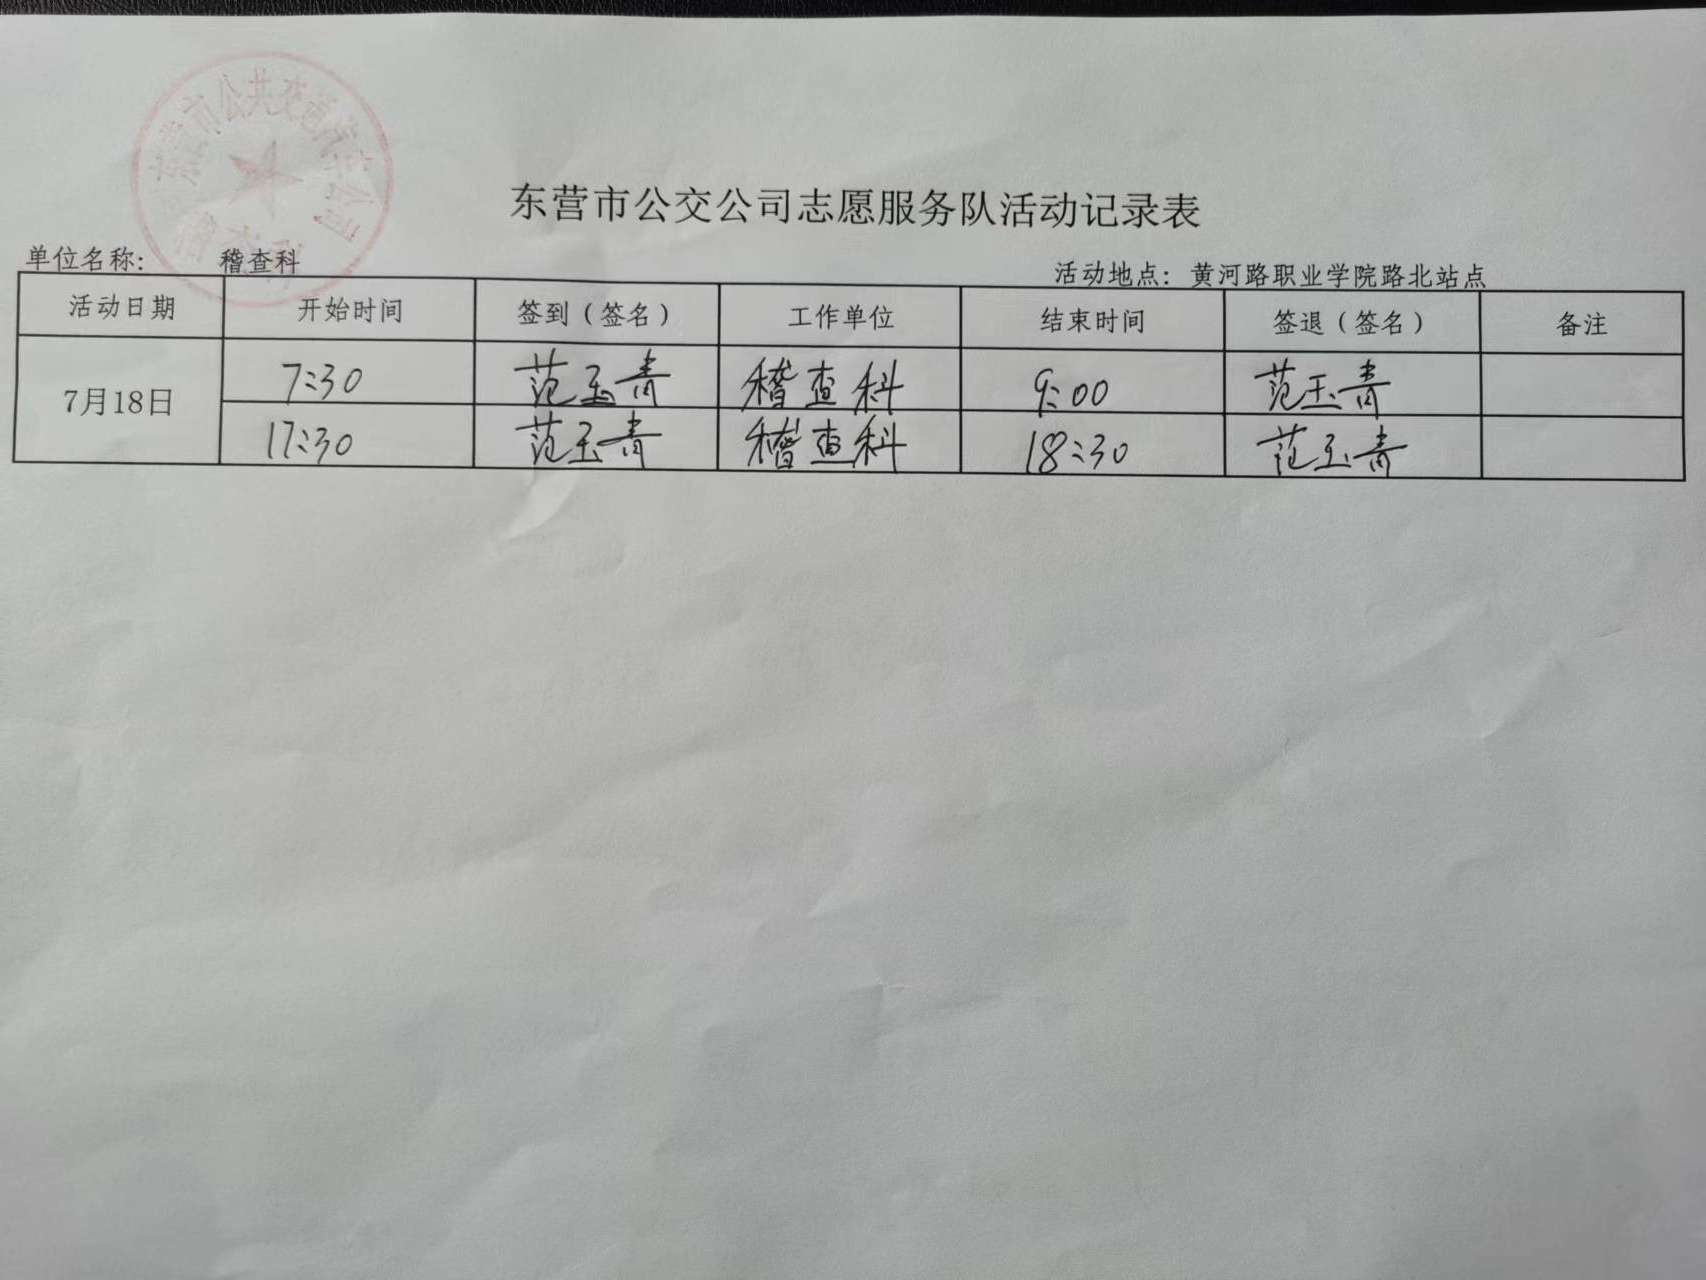 东营市公共交通汽车公司
稽查科
东营市公交公司志愿服务队活动记录表
单位名称: 稽查科 活动地点: 黄河路职业学院路北站点
活动日期 开始时间 签到(签名) 工作单位 结束时间 签退(签名) 备注
7月18日 7:30 范玉青 稽查科 9:00 范玉青
17:30 范玉青 稽查科 18:30 范玉青